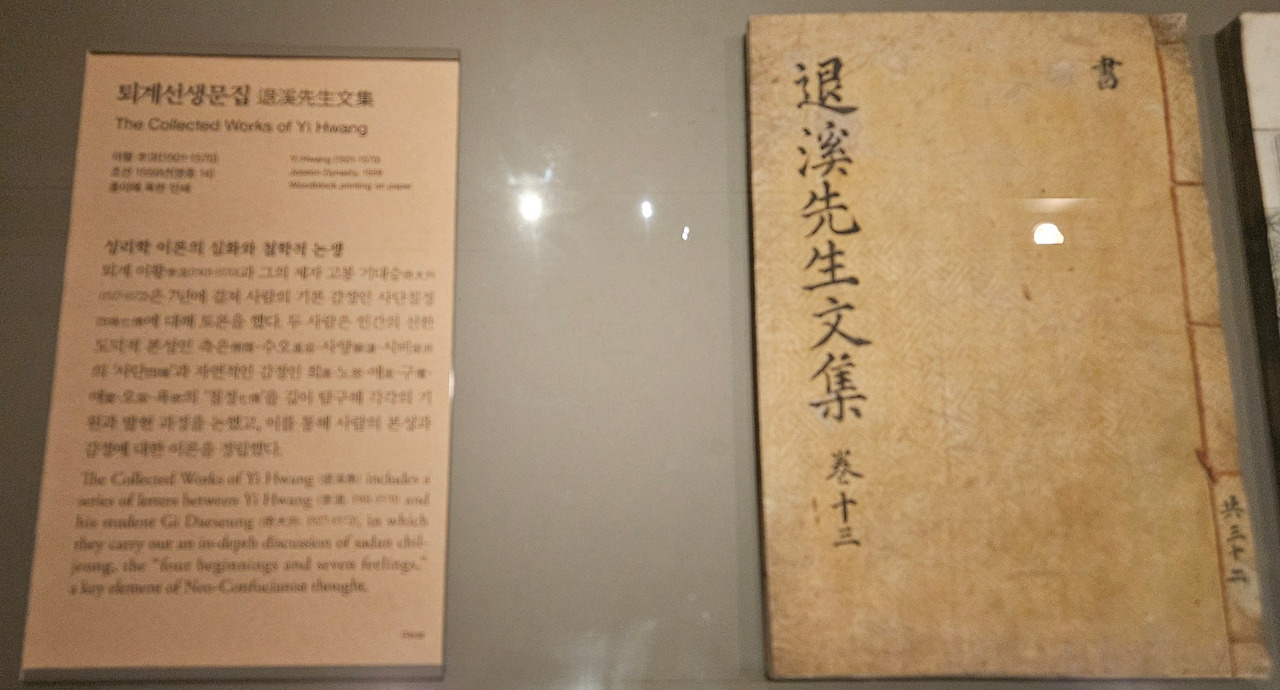 퇴계선생문집 退溪先生文集
The Collected Works of Yi Hwang
이황 李滉(1501-1570)
조선 1559년(명종 14)
종이에 목판 인쇄
Yi Hwang (1501-1570)
Joseon Dynasty, 1559
Woodblock printing on paper
성리학 이론의 심화와 철학적 논쟁
퇴계 이황李滉(1501-1570)과 그의 제자 고봉 기대승奇大升
(1527-1572)은 7년에 걸쳐 사람의 기본 감정인 사단칠정
四端七情에 대해 토론을 했다. 두 사람은 인간의 선한
도덕적 본성인 측은·수오·사양·시비
의 '사단四端'과 자연적인 감정인 희·노·애·구·
애·오·욕의 '칠정七情'을 깊이 탐구해 각각의 기
원과 발현 과정을 논했고, 이를 통해 사람의 본성과
감정에 대한 이론을 정립했다.
The Collected Works of Yi Hwang includes a
series of letters between Yi Hwang (李滉, 1501-1570) and
his student Gi Daeseung (奇大升, 1527-1572), in which
they carry out an in-depth discussion of sadan chil-
jeong, the "four beginnings and seven feelings,"
a key element of Neo-Confucianist thought.
書
退溪先生文集 卷十三
共三十二